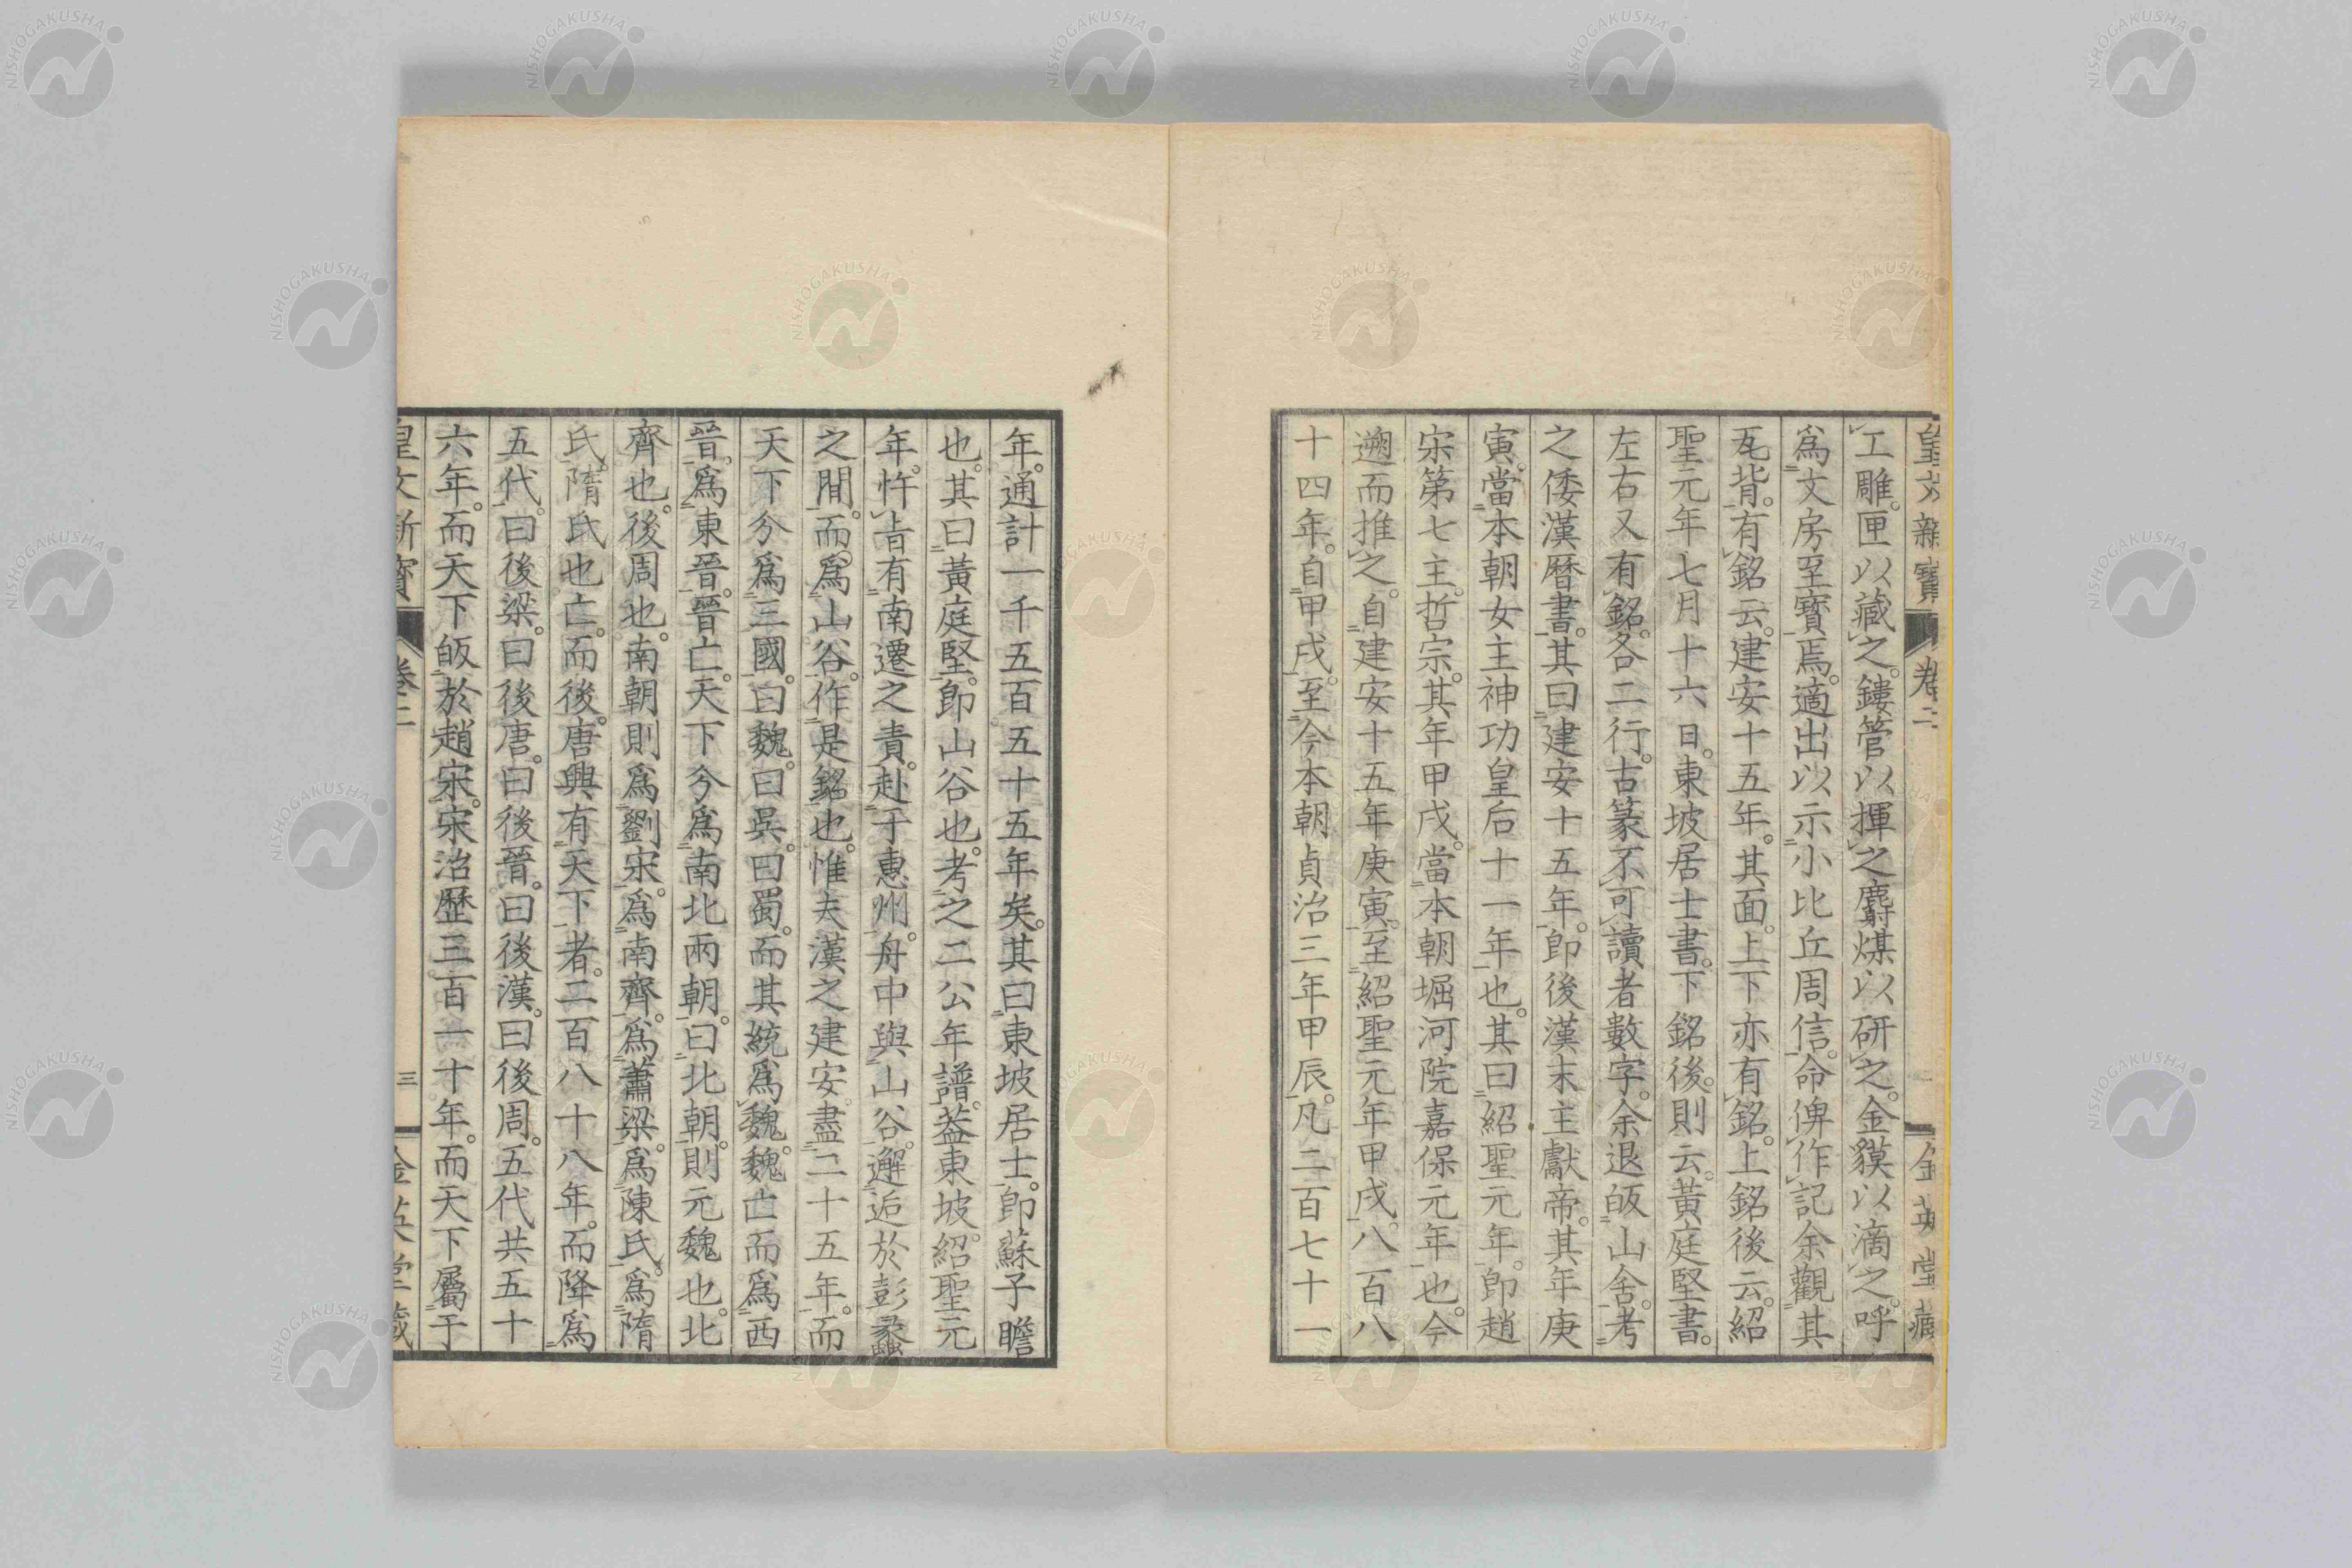 工雕匣以藏之。鏤管以揮之麝煤以研之。金貘以滴之。呼
爲文房至寶焉。適出以示小比丘周信。命俾作記余觀其
瓦背。有銘云。建安十五年。其面。上下亦有銘。上銘後云。紹
聖元年七月十六日。東坡居士書。下銘後。則云。黃庭堅書。
左右又有銘。各二行。古篆不可讀者數字。余退皈山舍。考
之倭漢曆書。其曰建安十五年。卽後漢末主獻帝。其年庚
寅。當本朝女主神功皇后十一年也。其曰紹聖元年。卽趙
宋第七主。哲宗。其年甲戌。當本朝堀河院嘉保元年也。今
遡而推之。自建安十五年庚寅。至紹聖元年甲戌。八百八
十四年。自甲戌。至今本朝貞治三年甲辰。凡二百七十一
年。通計一千五百五十五年矣。其曰東坡居士。卽蘇子瞻
也。其曰黃庭堅。卽山谷也。考之二公年譜。葢東坡。紹聖元
年。忤旨有南遷之責。赴于惠州。舟中與山谷。邂逅於彭蠡
之間。而爲山谷。作是銘也。惟夫漢之建安盡二十五年。而
天下分爲三國。曰魏。曰吳。曰蜀。而其統爲魏。魏亡而爲西
晉。爲東晉。晉亡。天下分爲南北兩朝。曰北朝。則元魏也。北
齊也。後周也。南朝則爲劉宋。爲南齊。爲蕭梁。爲陳氏。爲隋
氏。隋氏也亡。而後。唐興有天下者。二百八十八年。而降爲
五代。曰後梁。曰後唐。曰後晉。曰後漢。曰後周。五代共五十
六年。而天下皈於趙宋。宋治歷三百一十年。而天下屬于
卷二
三